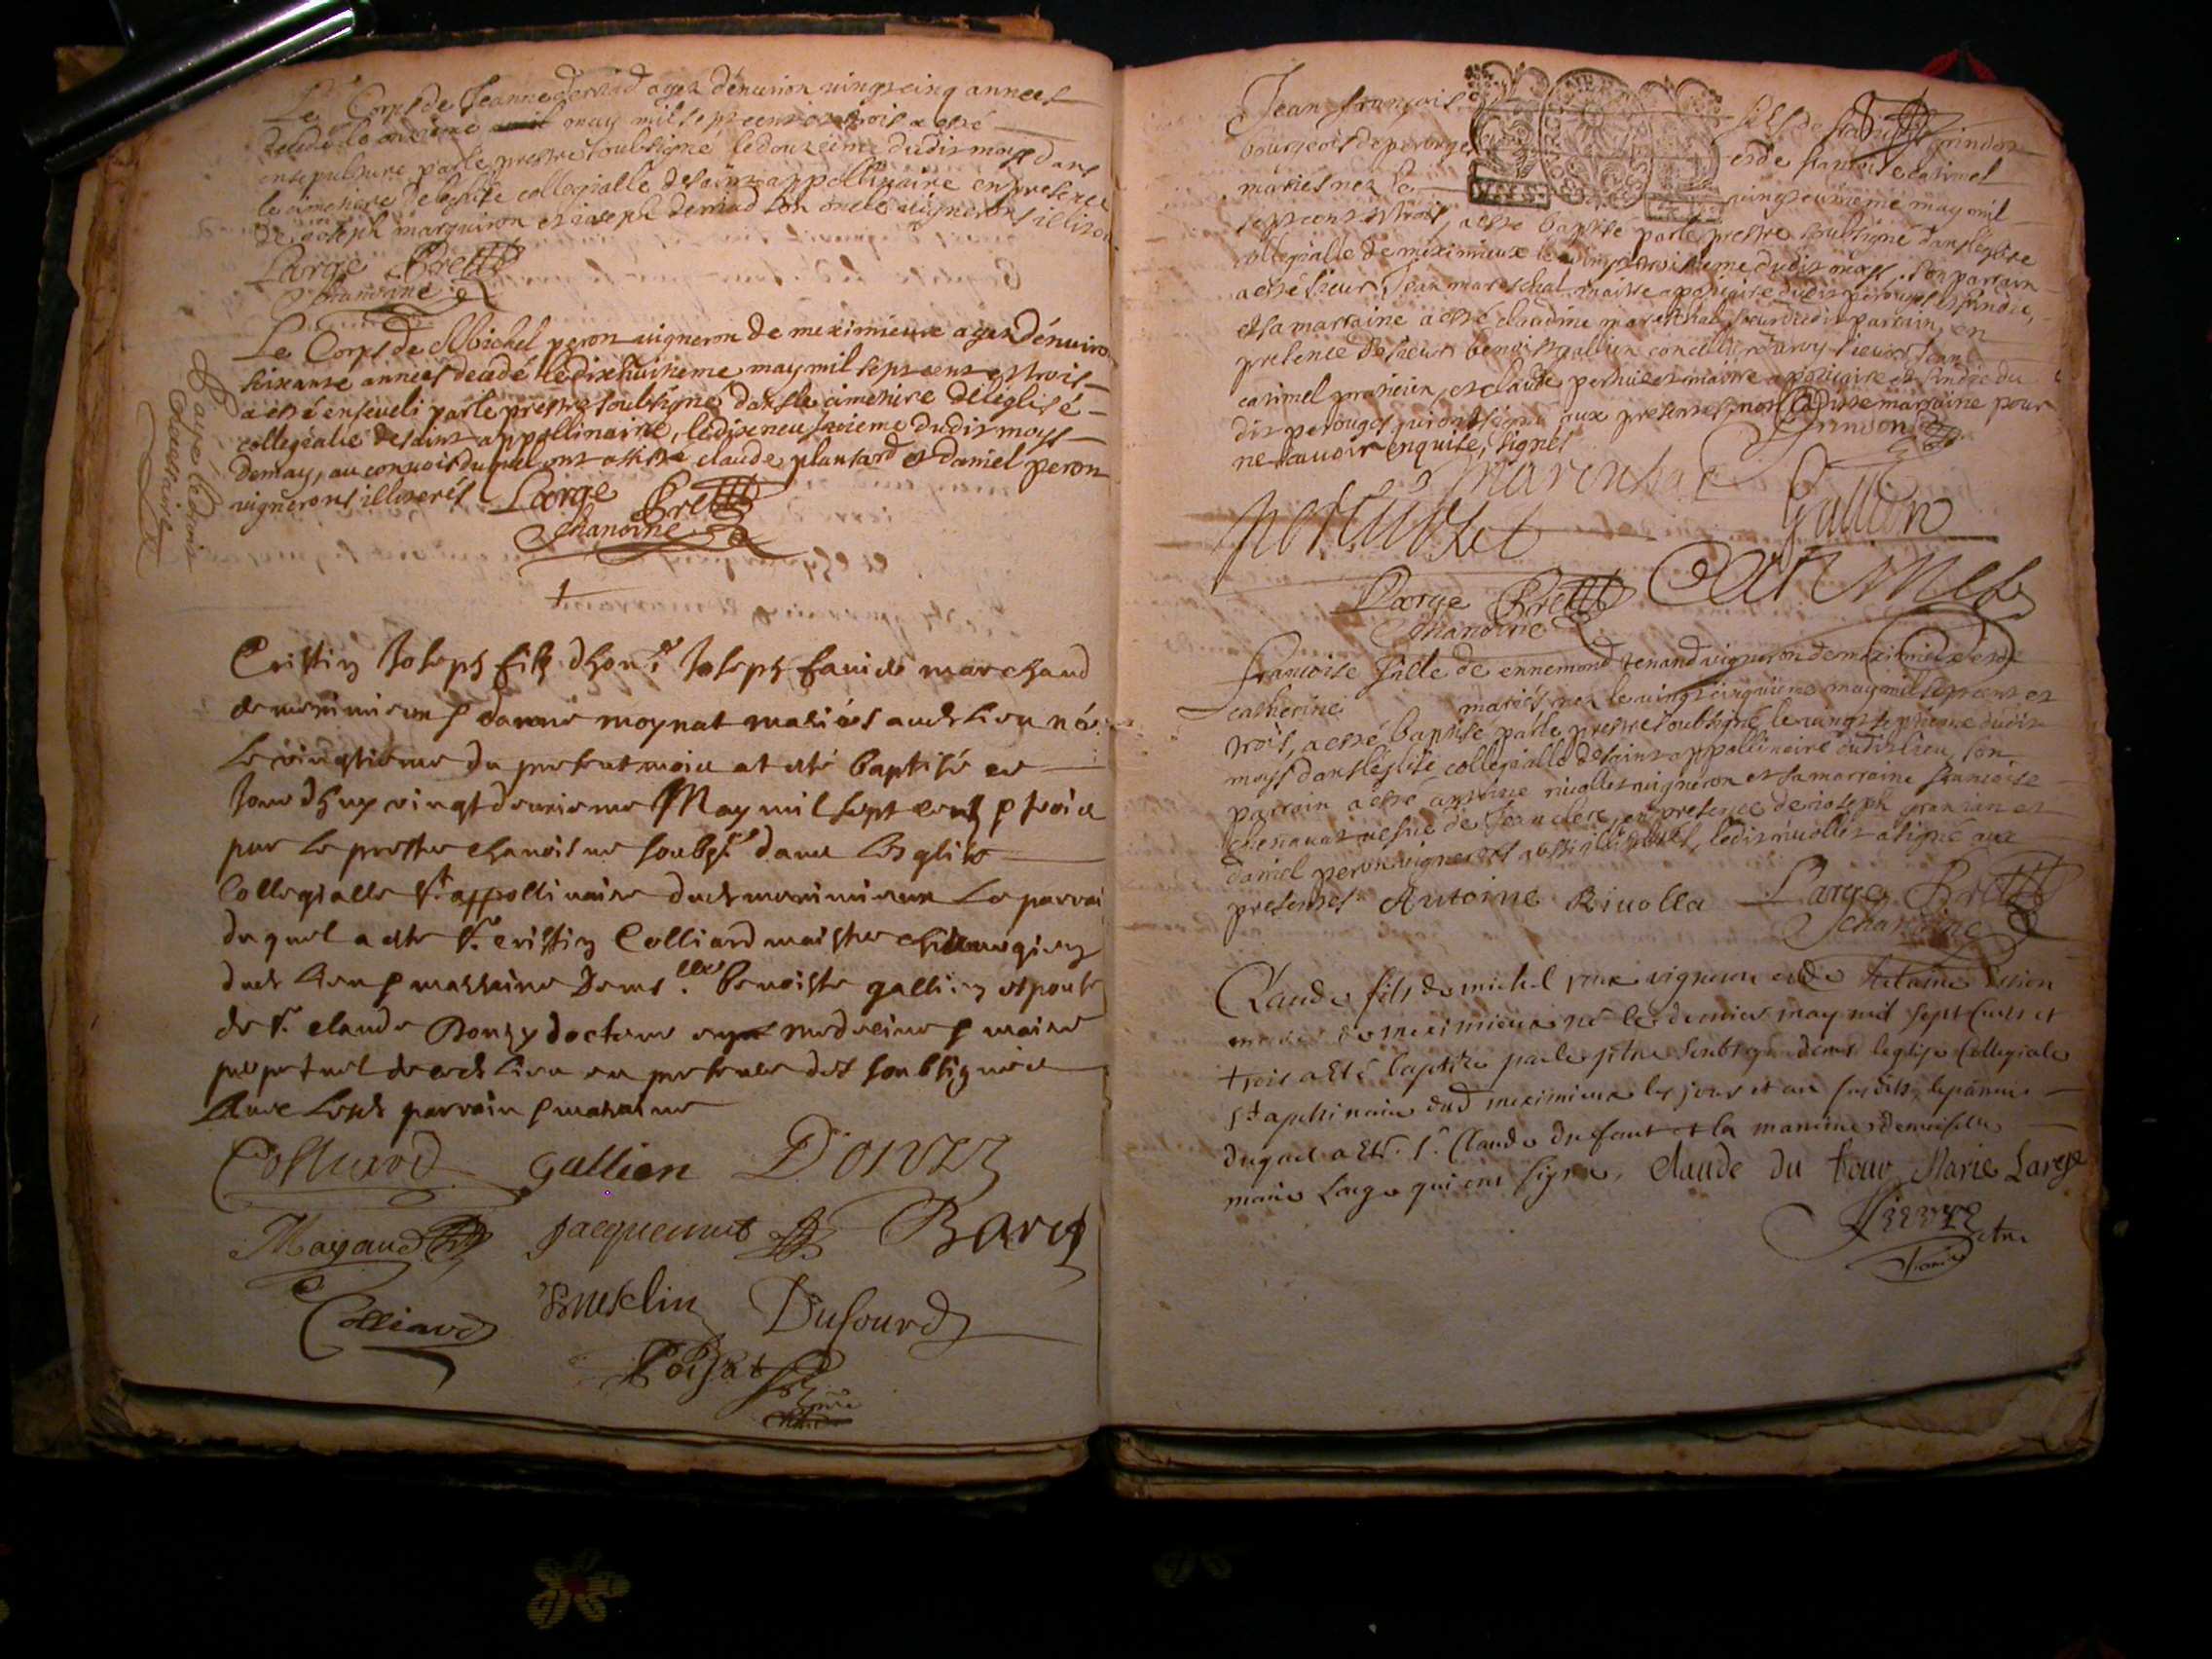 Le Corps de Jeanne derriad agée dénuiron uingt cinq années
decedé le onzieme may mil sept cent et trois a esté
ensepulture parle prestre soubsigné le douzeime dudit moys dans
le cimetiere de leglise collegialle de saint appollinaire en presence
de ioseph marguiron et ioseph derriad son oncle uignerons illiterés
Large Brettt
Chanoine
Le Corps de Michel peron uigneron de meximieux agez dénuiron
soixante années decedé le dixhuitieme may mil sept cent et trois
a esté enseueli parle prestre soubsigné dans le cimetiere de leglisé
collegialle de saint appollinaire, le dixneufuieme dudit moys
de may, au conuoit duquel ont assisté claude plantard et daniel peron
uignerons illiterés Large Brettt
Chanoine
Payé le droit
Cristin Joseph filz dhon.e Joseph fauide marchand
de meximieux & danne moynat mariés aud lieu né
Le vingtieme du present moia at esté baptisé ce
Jourdhuy vingtdeuxieme May mil sept cent & troia
par Le prestre chanoisne soubs.é dans Lesglise
Collegialle St. appollinaire dud meximieux Le parrai
duquel a este Sr. cristin Colliard maistre chirurgien
dud Lieu & marraine Dems.lle benoiste gallien espouse
de Sr. claude Bonzy docteur en medecine & maire
perpetuel de cedt Lieu en presence des soubsignés
Auec Lesd parrain & marraine
Colliard gallien
Mayaud Jacquemet
Colliard Dufourd
Jean francois fils de
bourgeois de perouges et de francoise carimel
mariés nez le uingt eunieme may mil
sept cent et trois, a esté baptisé parle prestre soubsigné dans leglise
collegialle de meximieux le uingt troisieme dudit moys. son parrain
a esté sieur Jean mareschal maitre apoticaire dudit perouges et sindic,
et sa marraine a esté claudine mareschal, soeur dudit parrain, en
presence de sieurs benoist gallien conseiller du roy sieurs Jean
carimel praticien, et claude perruiset maitre apoticaire et sindic du
dit perouges qui ont signé aux presentes, non ladite marraine pour
ne scauoir enquise, signés Grinson
mareschal gallien
perruiset Carimel
Large Brettt
Chanoine
francoise fille de ennemond tenand uigneron de meximieux et de
catherine mariés nez le uingt cinquieme may mil sept cent et
trois, a esté baptisé parle prestre soubsigné le uingt septieme dudit
moys dans leglise collegialle de saint appollinaire dudit lieu, son
parrain a esté antoine riuollet uigneron et sa marraine francoise
chenauat uefue de Jean clerc, en presence de ioseph granian et
daniel peron uignerons aussi illiterés, ledit riuollet a signé aux
presentes Antoine Riuolla Large Brettt
Chanoine
Claude fils de michel roux vigneron et de
mariés de meximieux né le dernier may mil sept cent et
trois a Eté baptize par le ptre soubsigné dans leglise Collegiale
St apolinaire dud meximieux les jour et an susdits, le parrain
duquel a Eté Sr. Claude dufour et la marraine demoiselle
marie Large qui ont signé. Claude du four Marie Large